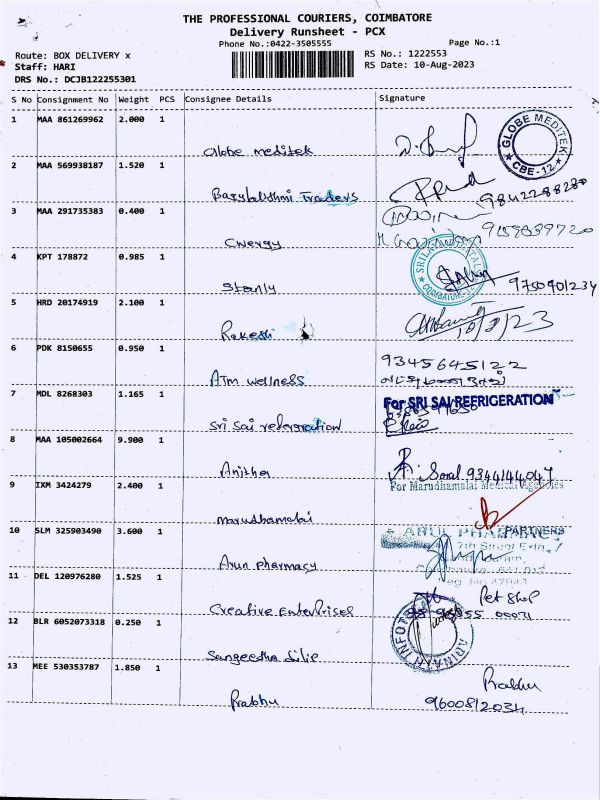 THE PROFESSIONAL COURIERS, COIMBATORE
Delivery Runsheet - PCX
Phone No.:0422-3505555
Page No.:1
Route: BOX DELIVERY x
RS No.: 1222553
Staff: HARI
RS Date: 10-Aug-2023
DRS No.: DCJB122255301
S No Consignment No Weight PCS Consignee Details Signature
1 MAA 861269962 2.000 1
GLOBE MEDITEK
CBE-12
Globe meditek
2 MAA 569938187 1.520 1
Traders
9842288280
3 MAA 291735383 0.400 1
9159839720
Cwergy
4 KPT 178872 0.985 1
COIMBATORE
9750901234
Stanly
5 HRD 20174919 2.100 1
10/8/23
Rakesh
6 PDK 8150655 0.950 1
9345645122
ATM wellness
7 MDL 8268303 1.165 1
For SRI SAI REFRIGERATION
Sri Sai refrigeration
8 MAA 105002664 9.900 1
9344144047
Anitha
9 IXM 3424279 2.400 1
For Marudhamalai Medical Agencies
marudhamalai
10 SLM 325903490 3.600 1
PARTNERS
7th Street Extn.
Arun pharmacy
11 DEL 120976280 1.525 1
Pet Shop
Creative Enterprises
12 BLR 6052073318 0.250 1
Sangeetha
13 MEE 530353787 1.850 1
Prabhu
Prabhu
9600812034